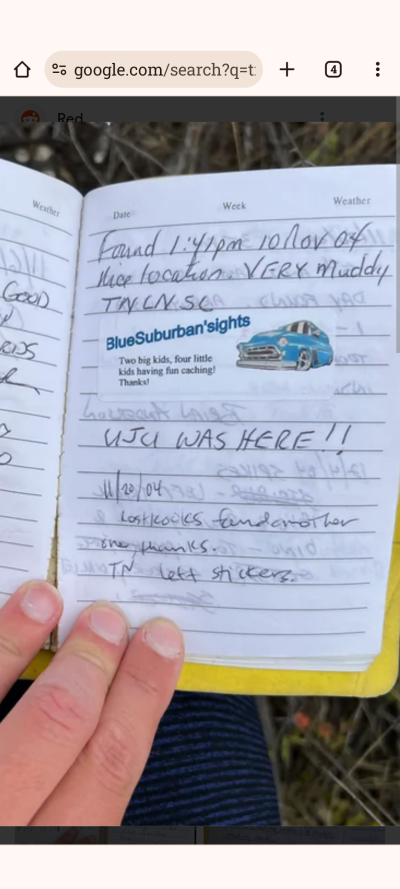 google.com/search?q=t
4
Red
Weather
Date
Week
Weather
GOOD
Found 1:41pm 10 Nov 04
Nice location. VERY Muddy
TNLNSC
BlueSuburban'sights
Two big kids, four little
kids having fun caching!
Thanks!
UJU WAS HERE!!
11/20/04
found another
one, thanks.
TN left stickers.